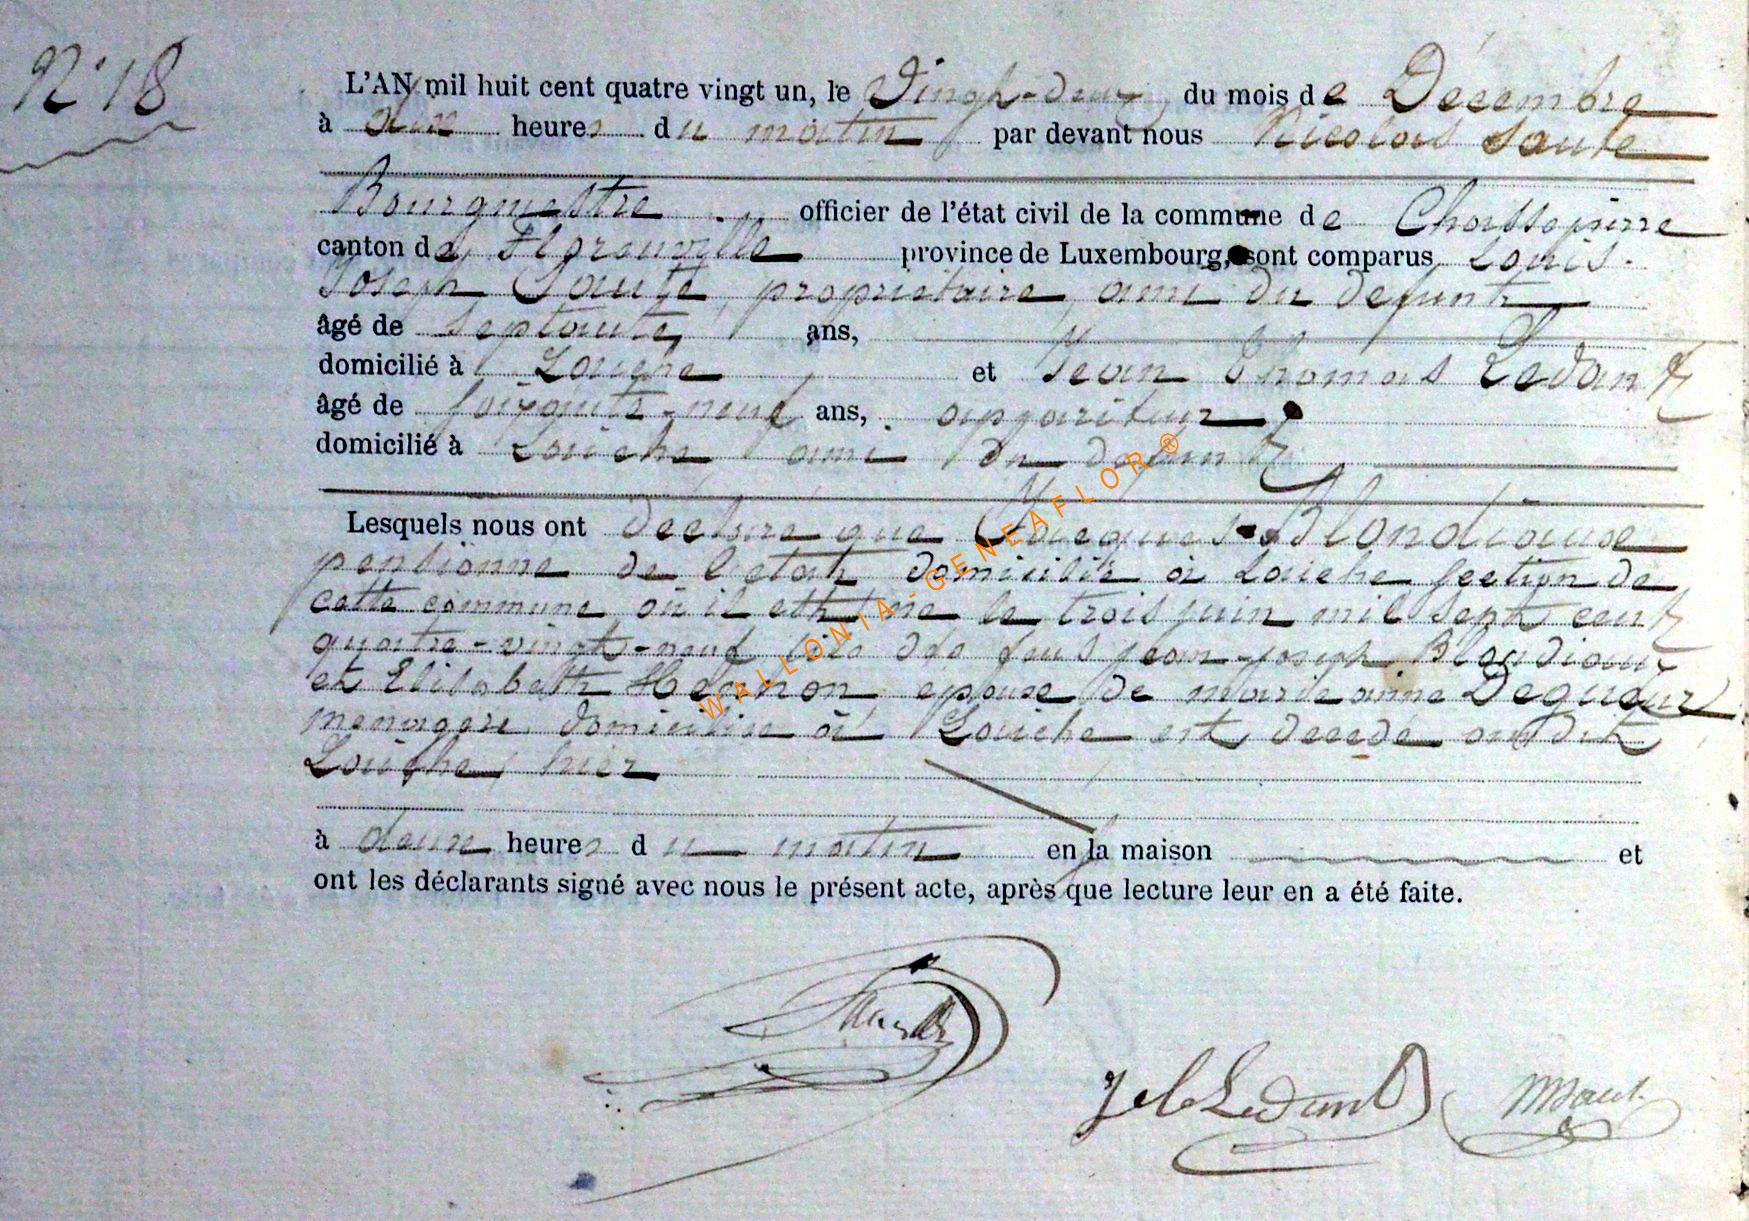 N° 18
L'AN mil huit cent quatre vingt un, le Vingt-deux du mois de Décembre
à dix heures du matin par devant nous Nicolas Sauté
Bourgmestre officier de l'état civil de la commune de Chassepierre
canton de Florenville province de Luxembourg, sont comparus Louis-
Joseph Sauté, propriétaire, ami du défunt
âgé de septante ans,
domicilié à Laiche et Jean Thomas Ledant
âgé de soixante-neuf ans, appariteur
domicilié à Laiche ami du défunt
Lesquels nous ont déclaré que Jacques Blondiaux
pensionné de l'état domicilié à Laiche section de
cette commune où il est né le trois juin mil sept cent
quatre-vingt-neuf fils des feus jean-joseph Blondiaux
et Elisabeth époux de marie anne
menagère domiciliée à Laiche est decedé audit
Laiche, hier
à deux heures du matin en la maison et
ont les déclarants signé avec nous le présent acte, après que lecture leur en a été faite.
Sauté
Ledant
WALLONIA-GENEAFLOR®